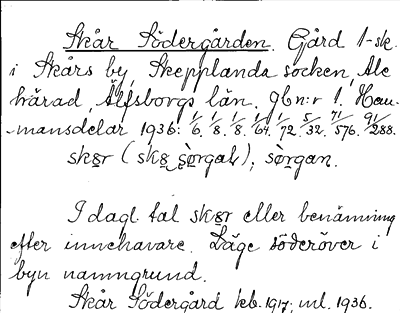 Skår Södergården. Gård 1-sk.
i Skårs by, Skepplanda socken, Ale
härad, Älfsborgs län. gbnnr 1. Hem-
mansdelar 1936: 1/6. 1/8. 1/8. 1/64. 1/72. 5/32. 71/576. 91/288.
skǫr (skǫ sörgaḷ); sörgan.
I dagl. tal skǫr eller benämning
efter innehavare. Läge söderöver i
byn namngrund.
Skår Södergård kb. 1917; ml. 1936.